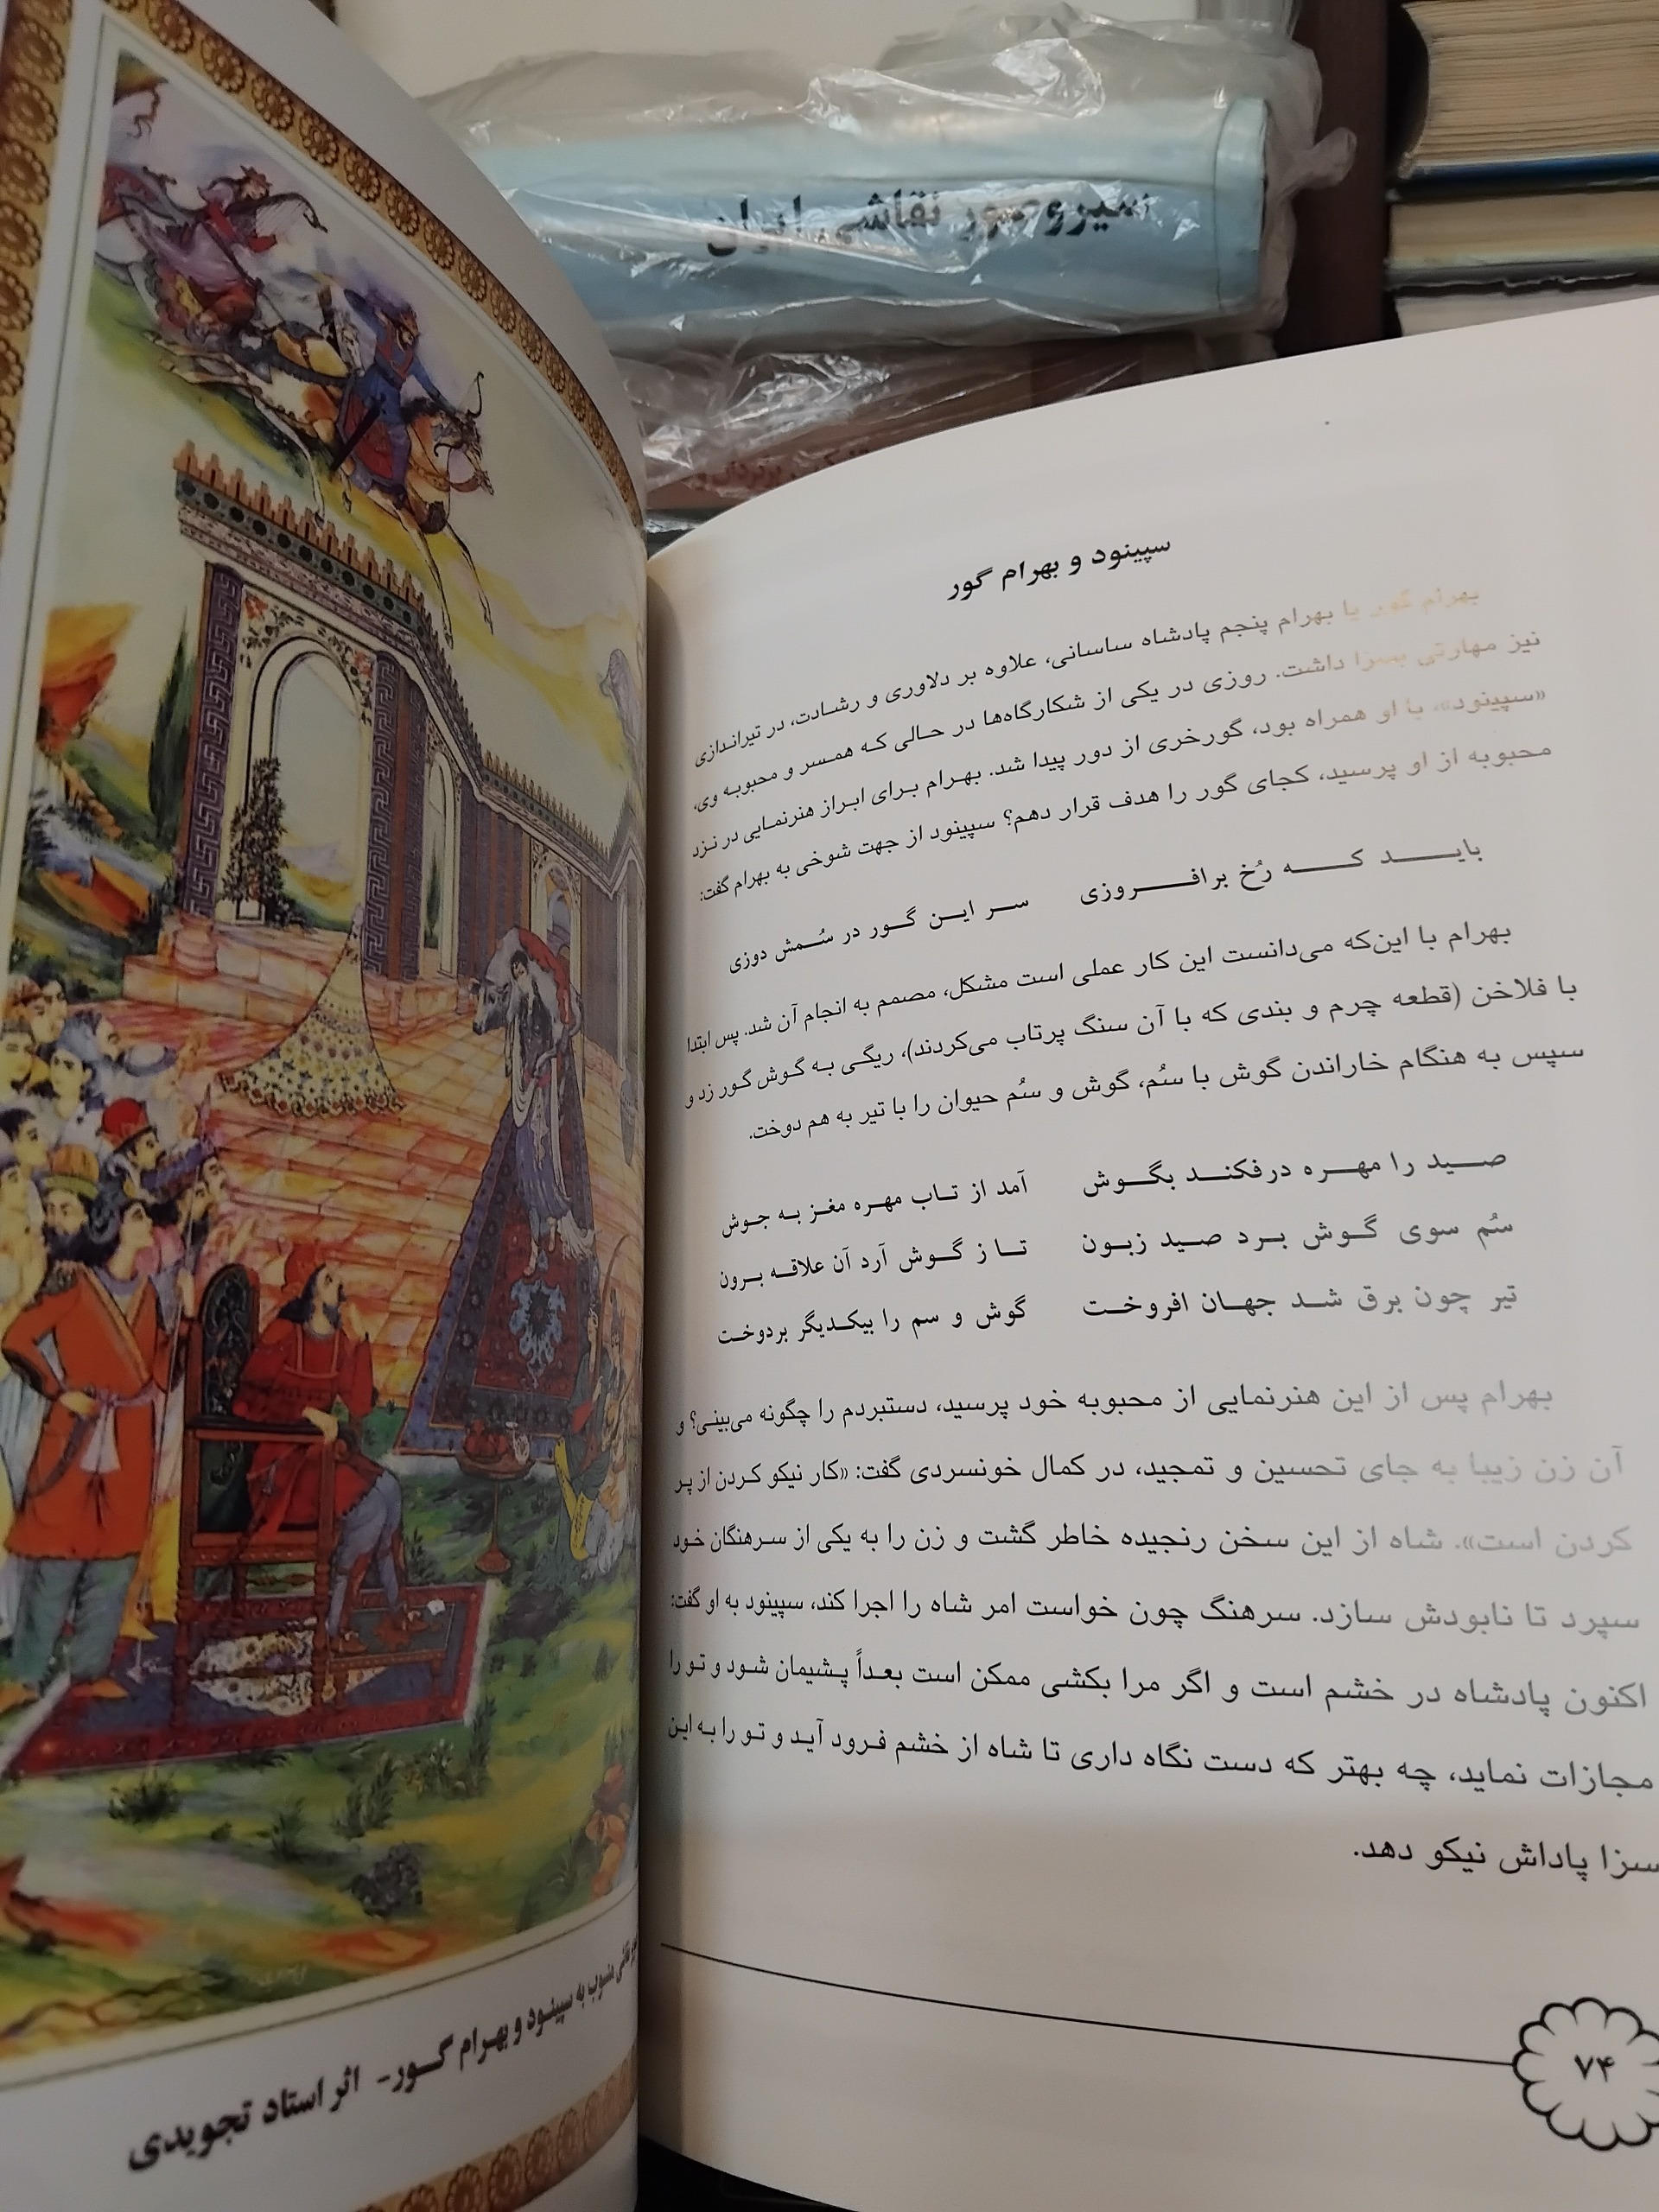 سیروصور نقاشی ایران
سپینود و بهرام گور
بهرام گور یا بهرام پنجم پادشاه ساسانی، علاوه بر دلاوری و رشادت، در تیراندازی
نیز مهارتی بسزا داشت. روزی در یکی از شکارگاه‌ها در حالی که همسر و محبوبه وی،
«سپینود»، با او همراه بود، گورخری از دور پیدا شد. بهرام برای ابراز هنرنمایی در نزد
محبوبه از او پرسید، کجای گور را هدف قرار دهم؟ سپینود از جهت شوخی به بهرام گفت:
باید که رُخ برافروزی سر این گور در سُمش دوزی
بهرام با این‌که می‌دانست این کار عملی است مشکل، مصمم به انجام آن شد. پس ابتدا
با فلاخن (قطعه چرم و بندی که با آن سنگ پرتاب می‌کردند)، ریگی به گوش گور زد و
سپس به هنگام خاراندن گوش با سُم، گوش و سُم حیوان را با تیر به هم دوخت.
صید را مهره درفکند بگوش آمد از تاب مهره مغز به جوش
سُم سوی گوش برد صید زبون تا ز گوش آرد آن علاقه برون
تیر چون برق شد جهان افروخت گوش و سم را بیکدیگر بردوخت
بهرام پس از این هنرنمایی از محبوبه خود پرسید، دستبردم را چگونه می‌بینی؟ و
آن زن زیبا به جای تحسین و تمجید، در کمال خونسردی گفت: «کار نیکو کردن از پر
کردن است». شاه از این سخن رنجیده خاطر گشت و زن را به یکی از سرهنگان خود
سپرد تا نابودش سازد. سرهنگ چون خواست امر شاه را اجرا کند، سپینود به او گفت:
اکنون پادشاه در خشم است و اگر مرا بکشی ممکن است بعداً پشیمان شود و تو را
مجازات نماید، چه بهتر که دست نگاه داری تا شاه از خشم فرود آید و تو را به این
سزا پاداش نیکو دهد.
۷۴
منسوب به سپینود و بهرام گور- اثر استاد تجویدی